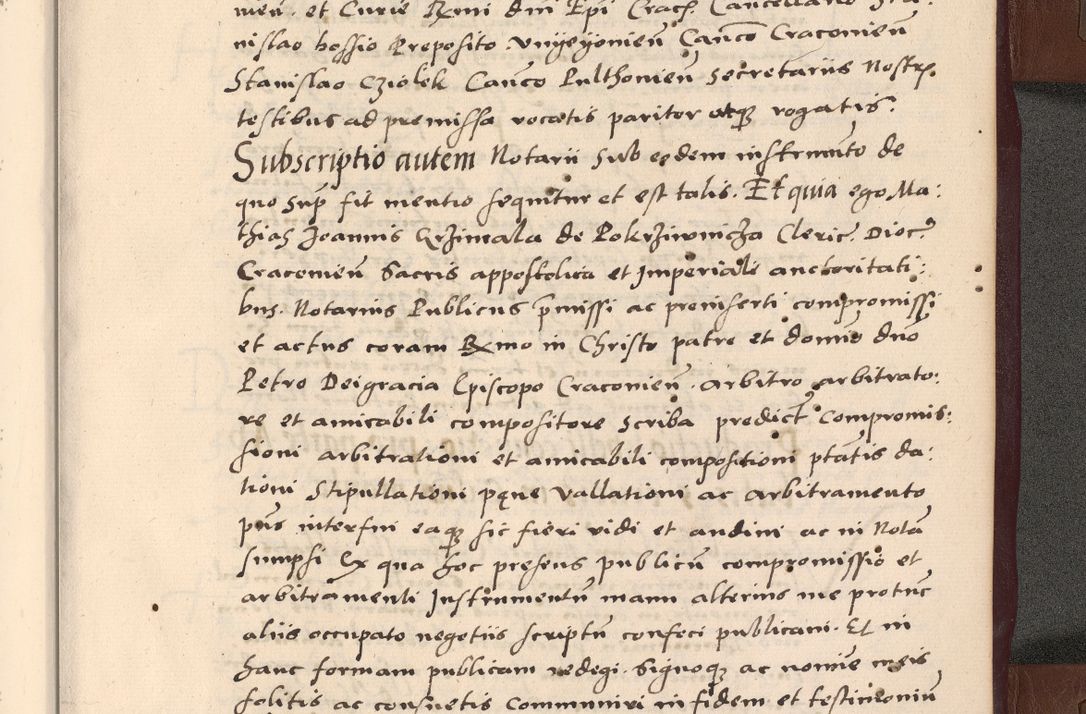 nień. et Curie Rmi dni Epi Crac. Cancellario Sta:
nislao hossio Preposito Vnyeyonień Canco Craconień
Stanislao Cziolek Canco Pulthonień Secretariis Nostr
testibus ad premissa vocatis pariter atq rogatis.
Subscriptio autem Notarii sub eodem instrumento de
quo sup fit mentio sequitur et est talis. Et quia ego Ma:
thias Joannis Grzimala de Pokrziwnicza Cleric. Dioc.
Craconień Sacris appostolica et Imperiali auctoritati:
bus. Notarius Publicus pmissi ac preinserti compromissi
et actus coram Rmo in Christo patre et domino dno
Petro Dei gracia Episcopo Craconień. arbitro arbitrato:
re et amicabili compositore Scriba predict Compromis:
sioni arbitrationi et amicabili compositioni ptatis da:
tioni Stipullationi pęne vallationi ac arbitramento
pns interfui eaq sic fieri vidi et audiui ac in Notā
sumpsi Ex qua hoc presens publicū compromissio et
arbitramenti Instrumentū manu alterius me protunc
aliis occupato negotiis scriptū confeci publicaui. Et in
hanc formam publicam redegi. Signoq ac nomine meis
solitis ac consuetis Communiui in fidem et testimoniū